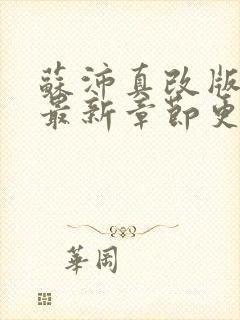 蘇沛真改版
最新章節更
華岡